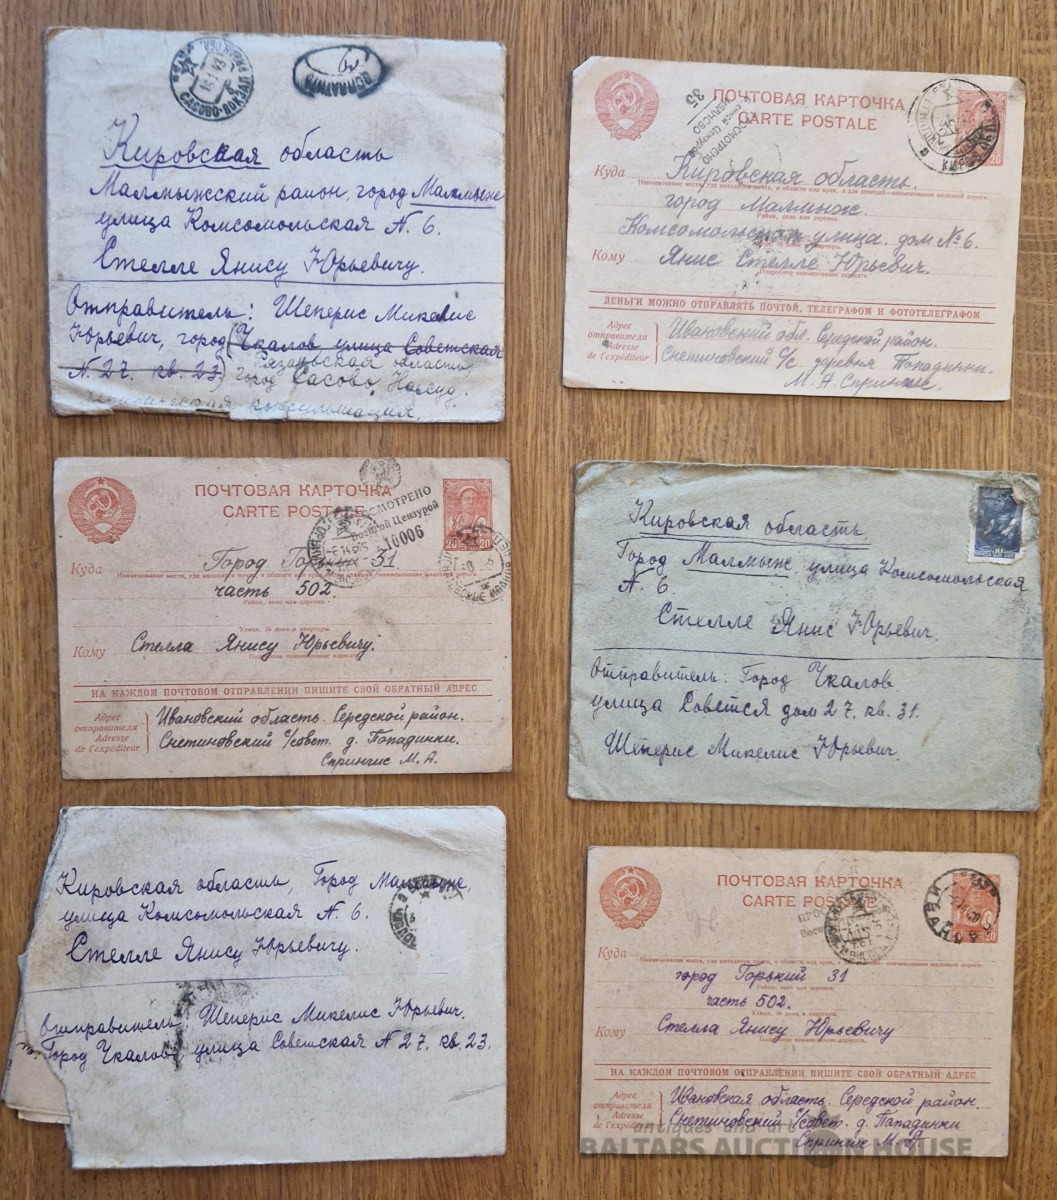 САСОВО-ВОКЗАЛ
Кировская область
Малмыжский район, город Малмыже
улица Комсомольская N. 6.
Стелле Янису Юрьевичу.
Отправитель: Шеперис Микелис
Юрьевич, город Чкалов улица Советская
N. 27. кв. 23.) Рязанская область,
город Сасово, Нарсуд.
консультация.
ПОЧТОВАЯ КАРТОЧКА
CARTE POSTALE
35
20
Куда
Кировская область.
город Малмыж.
Комсомольская улица. дом № 6.
Кому
Янис Стелле Юрьевич.
ДЕНЬГИ МОЖНО ОТПРАВЛЯТЬ ПОЧТОЙ, ТЕЛЕГРАФОМ И ФОТОТЕЛЕГРАФОМ
Адрес
отправителя
Adresse
de l'expéditeur
Ивановский обл. Середской район.
Снетиновский С/с. деревня Попадинки.
М. А. Спрингис.
ПОЧТОВАЯ КАРТОЧКА
CARTE POSTALE
Военной Цензурой
10006
20 20
Куда
Город 31
часть 502.
Кому
Стелла Янису Юрьевичу.
НА КАЖДОМ ПОЧТОВОМ ОТПРАВЛЕНИИ ПИШИТЕ СВОЙ ОБРАТНЫЙ АДРЕС
Адрес
отправителя
Adresse
de l'expéditeur
Ивановский область. Середской район.
Снетиновский с/совет. д. Попадинки.
Спрингис М. А.
Кировская область
Город Малмыж, улица Комсомольская
N. 6.
Стелле Янис Юрьевич.
Отправитель: Город Чкалов
улица Совется дом 27. кв. 31.
Шеперис Микелис Юрьевич.
Кировская область, Город Малмыже,
улица Комсомольская N. 6.
Стелле Янису Юрьевичу.
Отправитель Шеперис Микелис Юрьевич.
Город Чкалов улица Советская N 27. кв. 23.
ПОЧТОВАЯ КАРТОЧКА
CARTE POSTALE
20
Куда
город Горький 31
часть 502.
Кому
Стелла Янису Юрьевичу
НА КАЖДОМ ПОЧТОВОМ ОТПРАВЛЕНИИ ПИШИТЕ СВОЙ ОБРАТНЫЙ АДРЕС
Адрес
отправителя
Adresse
de l'expéditeur
Ивановская область. Середской район.
Снетиновский с/совет. д. Попадинки
Спрингис М. А.
antiques and art
BALTARS AUCTION HOUSE